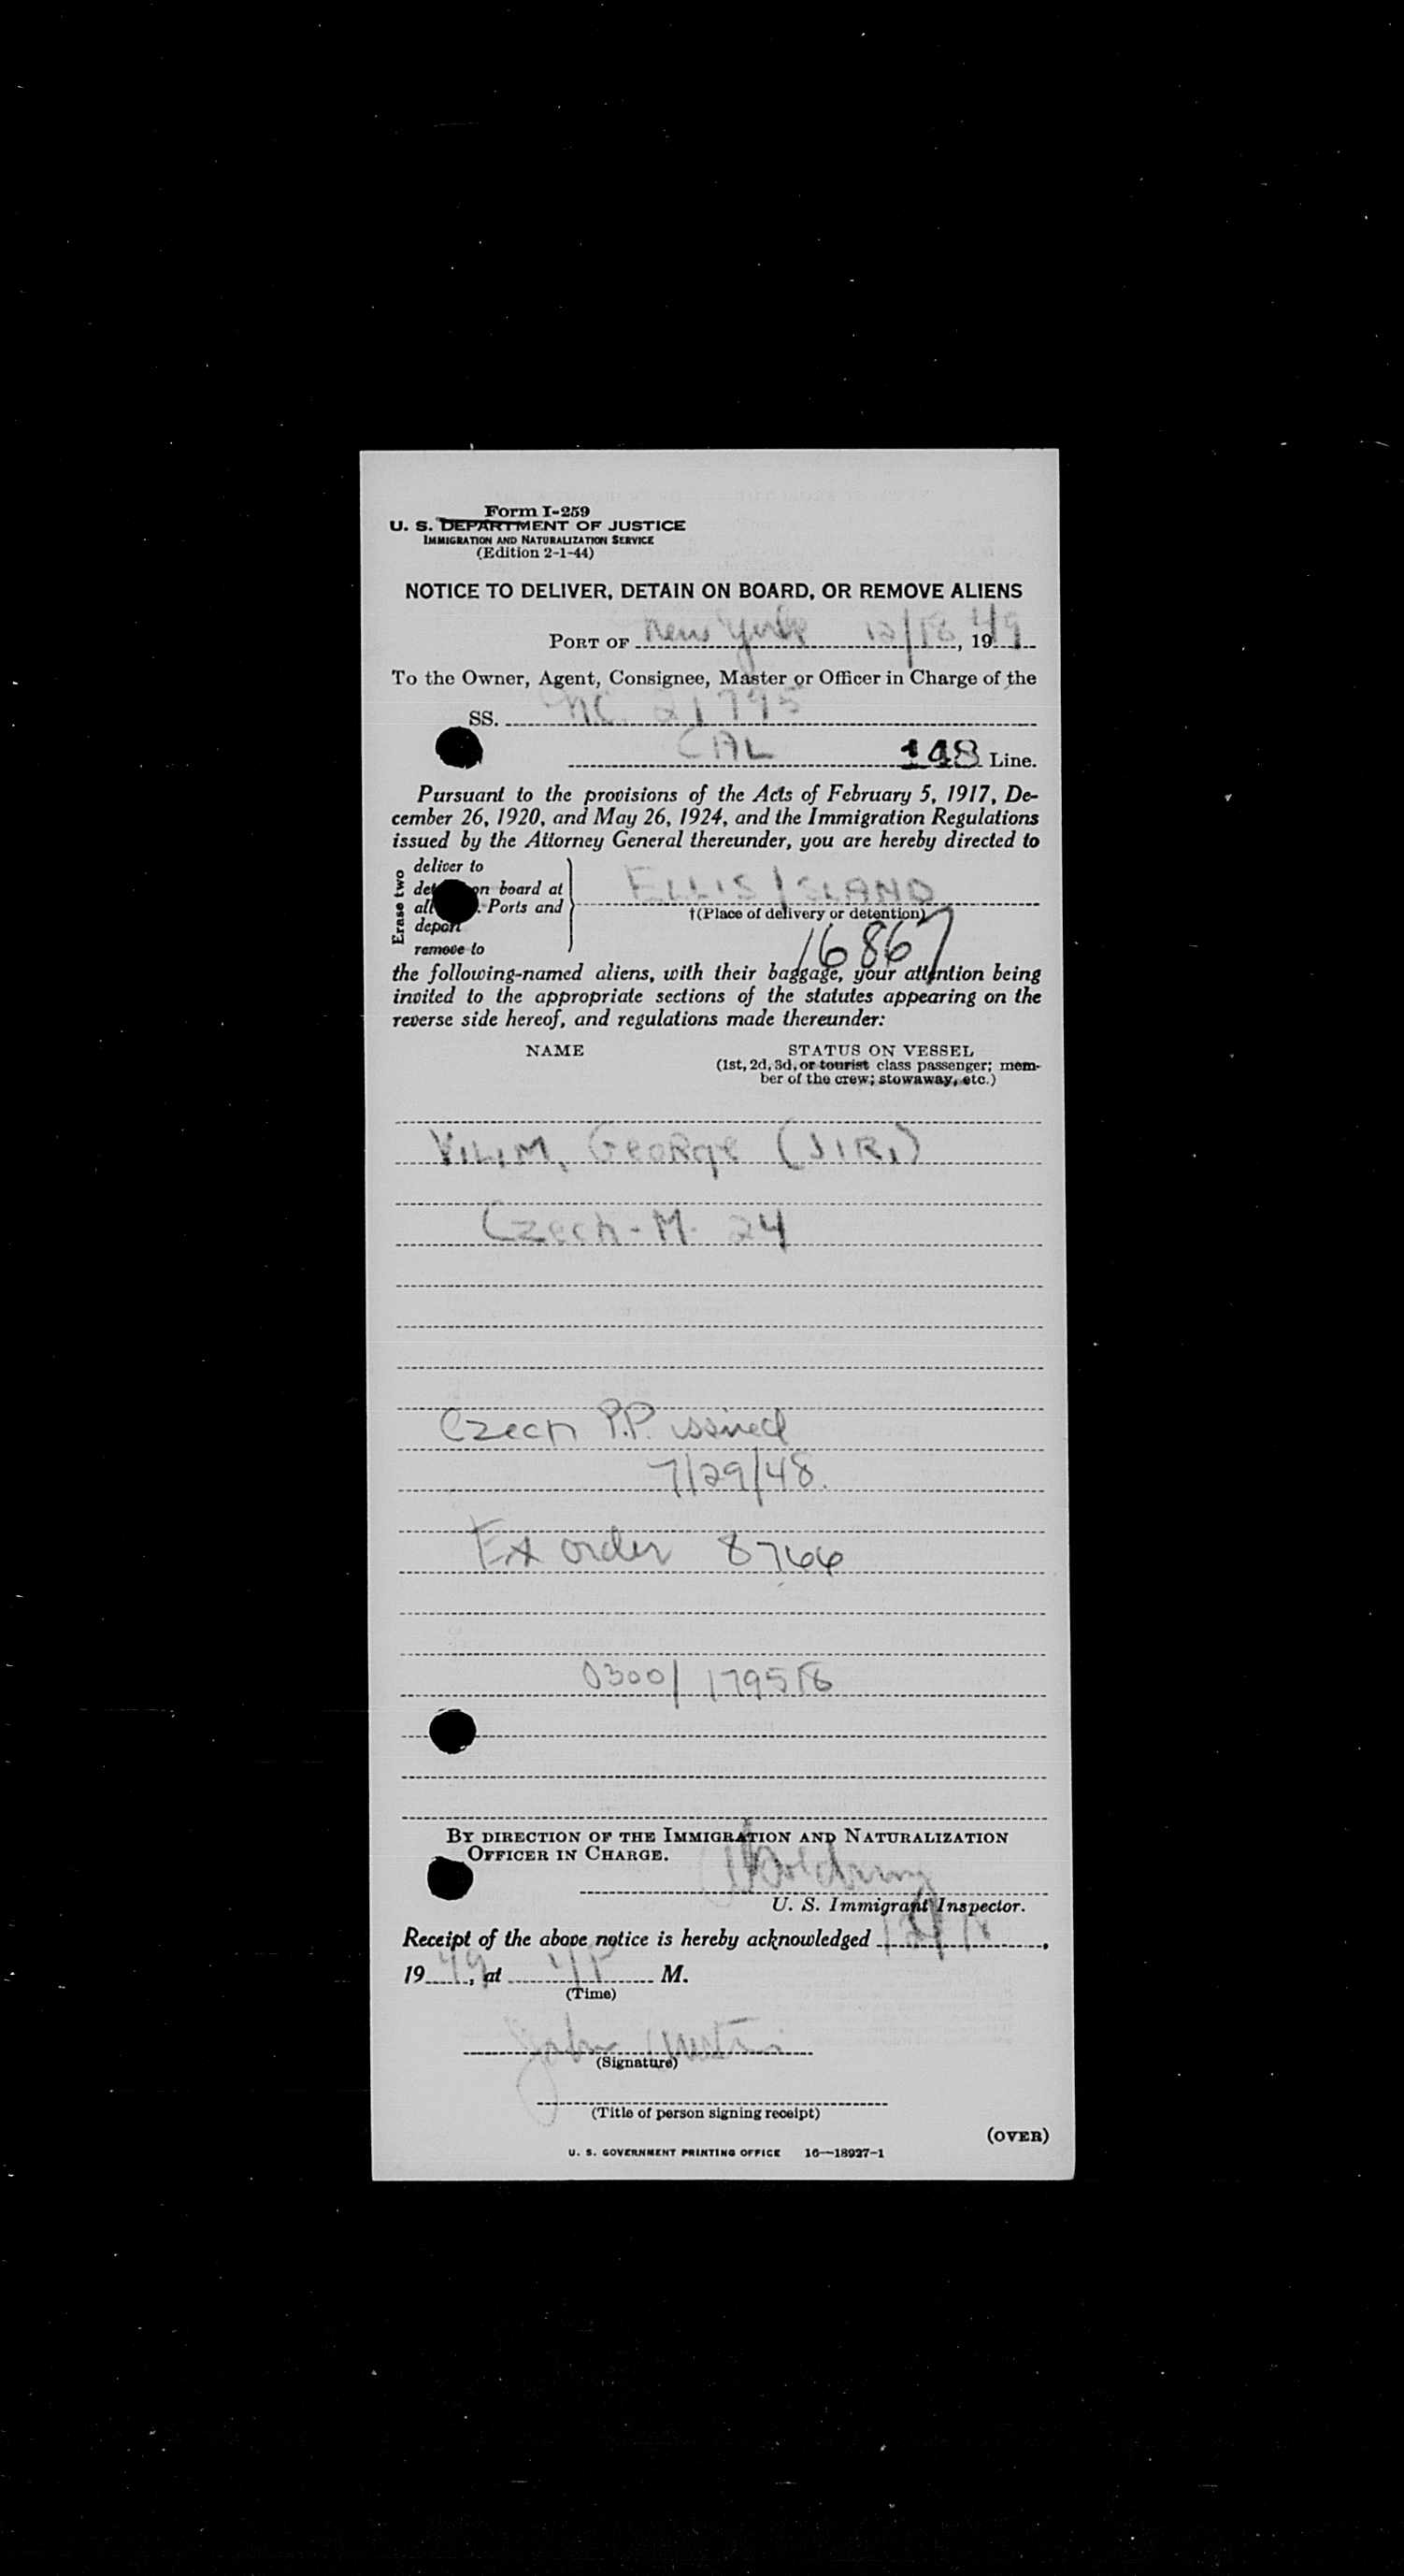 Form I-259
U. S. DEPARTMENT OF JUSTICE
IMMIGRATION AND NATURALIZATION SERVICE
(Edition 2-1-44)
NOTICE TO DELIVER, DETAIN ON BOARD, OR REMOVE ALIENS
PORT OF New York 12/18, 1949
To the Owner, Agent, Consignee, Master or Officer in Charge of the
SS. NC 21795
CAL 148 Line.
Pursuant to the provisions of the Acts of February 5, 1917, De-
cember 26, 1920, and May 26, 1924, and the Immigration Regulations
issued by the Attorney General thereunder, you are hereby directed to
Erase two
deliver to
on board at
Ports and
deport
remove to
ELLIS ISLAND
†(Place of delivery or detention)
16867
the following-named aliens, with their baggage, your attention being
invited to the appropriate sections of the statutes appearing on the
reverse side hereof, and regulations made thereunder:
NAME STATUS ON VESSEL
(1st, 2d, 3d, or tourist class passenger; mem-
ber of the crew; stowaway, etc.)
VILIM, GEORGE (JIRI)
Czech - M. 24
Czech P.P. issued
7/29/48.
Ex order 8766
0300/
BY DIRECTION OF THE IMMIGRATION AND NATURALIZATION
OFFICER IN CHARGE.
U. S. Immigrant Inspector.
Receipt of the above notice is hereby acknowledged 12/18,
1949, at 4P M.
(Time)
John
(Signature)
(Title of person signing receipt)
(OVER)
U. S. GOVERNMENT PRINTING OFFICE 16—18927-1